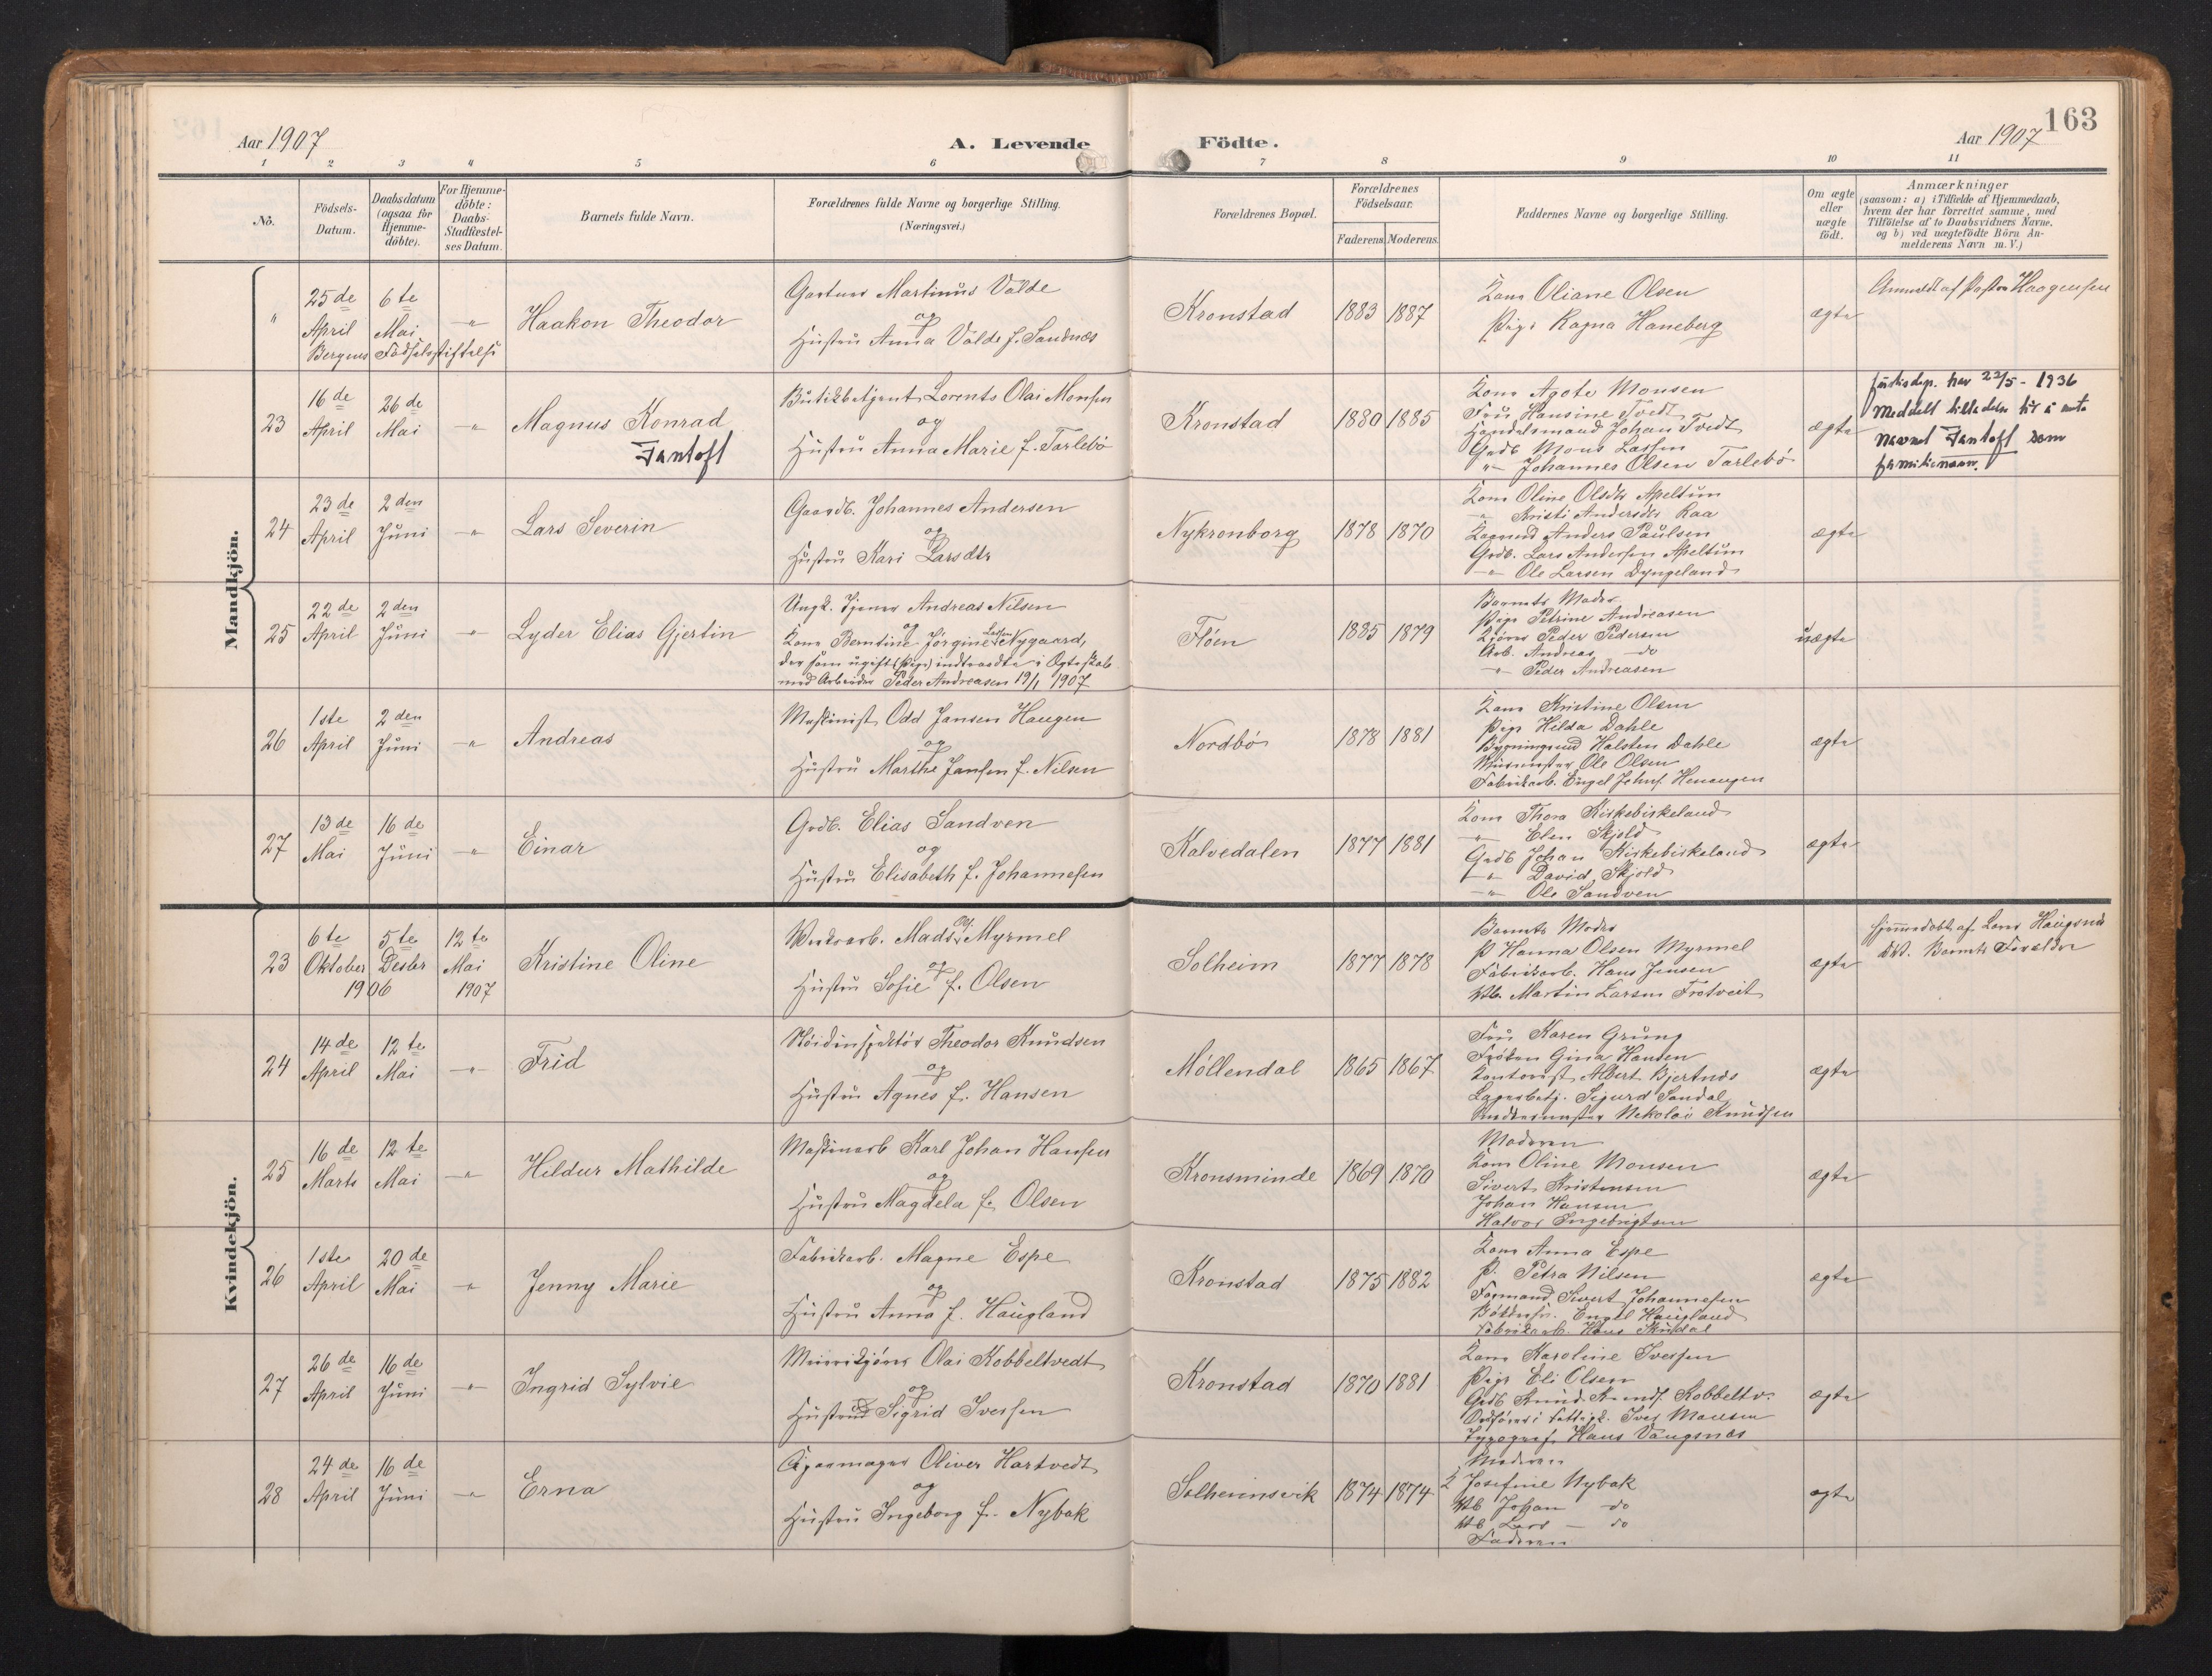 163
Aar 1907
A. Levende
Födte.
Aar 1907
1 2 3 4 5 6 7 8 9 10 11
No.
Födsels-
Datum.
Daabsdatum
(ogsaa for
Hjemme-
döbte).
For Hjemme-
döbte:
Daabs-
Stadfæstel-
ses Datum.
Barnets fulde Navn.
Forældrenes fulde Navne og borgerlige Stilling.
(Næringsvei.)
Forældrenes Bopæl.
Forældrenes
Födselsaar.
Faderens. Moderens.
Faddernes Navne og borgerlige Stilling.
Om ægte
eller
uægte
födt.
Anmærkninger
(saasom: a) i Tilfælde af Hjemmedaab,
hvem der har forrettet samme, med
Tilföielse af to Daabsvidners Navne,
og b) ved uægtefödte Börn An-
melderens Navn m. V.)
Mandkjön.
"
25de April
Bergens Födselsstiftelse
6te Mai
"
Haakon Theodor
Gartner Martinus Valde
og
Hustru Anna Valde f. Sandnæs
Kronstad
1883 1887
Kone Oliane Olsen
Pige Ragna Haneberg
ægte
Anmeldt af Pastor Haagensen
23
16de April
26de Mai
"
Magnus Konrad
Fantoft
Butikbetjent Lorents Olai Monsen
og
Hustru Anna Marie f. Tarlebø
Kronstad
1880 1885
Kone Agote Monsen
Fru Hansine Tvedt
Handelsmand Johan Tvedt
Grdb. Mons Larsen
" Johannes Olsen Tarlebø
ægte
Justisdep. har 22/5 - 1936
meddelt tilladelse til å anta
navnet Fantoft som
familienavn.
24
23de April
2den Juni
"
Lars Severin
Gaardb. Johannes Andersen
og
Hustru Kari Larsdtr
Nykronborg
1878 1870
Kone Oline Olsdtr Apeltun
" Kristi Andersdtr Raa
Anders Paulsen
Grdb. Lars Andersen Apeltun
" Ole Larsen Dyngeland
ægte
25
22de April
2den Juni
"
Lyder Elias Gjertin
Ungk. Tjener Andreas Nilsen
og
Kone Berntine Jørgine Larsen Nygaard,
der som ugift (Pige) indtraadte i Ægteskab
med Arbeider Peder Andreasen 19/1 1907
Fløen
1885 1879
Barnets Moder
Pige Petrine Andreasen
Kjører Peder Pedersen
Arb. Andreas do
" Peder Andreasen
uægte
26
1ste April
2den Juni
"
Andreas
Maskinist Odd Jansen Haugen
og
Hustru Marthe Jansen f. Nilsen
Nordbø
1878 1881
Kone Kristine Olsen
Pige Hilda Dahle
Bygningssnd Halsten Dahle
Murmester Ole Olsen
Fabrikarb. Engel Johns. Henaugen
ægte
27
13de Mai
16de Juni
"
Einar
Grdb. Elias Sandven
og
Hustru Elisabeth f. Johannesen
Kalvedalen
1877 1881
Kone Thora Kirkebirkeland
" Elen Skjold
Grdb Johan Kirkebirkeland
" David Skjold
" Ole Sandven
ægte
Kvindekjön.
23
6te Oktober 1906
5te Desbr
12te Mai 1907
Kristine Oline
Verksarb. Mads Ols. Myrmel
og
Hustru Sofie f. Olsen
Solheim
1877 1878
Barnets Moder
P Hanna Olsen Myrmel
Fabrikarb. Hans Jensen
Martin Larsen Trotveit
ægte
Hjemmedøbt af Lars Haugsnæs
DV. Barnets Forældre
24
14de April
12te Mai
"
Frid
Veiinspektör Theodor Knudsen
og
Hustru Agnes f. Hansen
Møllendal
1865 1867
Fru Karen Grung
Frøken Gina Hansen
Kontorist Albert Bjertnæs
Lagerbetj. Sigurd Sandal
Nikolai Knudsen
ægte
25
16de Marts
12te Mai
"
Hildur Mathilde
Maskinarb Karl Johan Hansen
og
Hustru Magdela f. Olsen
Kronsminde
1869 1870
Moderen
Kone Oline Monsen
Sivert Kristensen
Johan Hansen
Halvor Ingebrigtsen
ægte
26
1ste April
20de Mai
"
Jenny Marie
Fabrikarb. Magne Espe
og
Hustru Anna f. Haugland
Kronstad
1875 1882
Kone Anna Espe
P. Petra Nilsen
Formand Sivert Johannesen
Engel Haugland
Fabrikarb. Hans Skudal
ægte
27
26de April
16de Juni
"
Ingrid Sylvie
Meierikjører Olai Kobbeltvedt
og
Hustru Sigrid Iversen
Kronstad
1870 1881
Kone Karoline Iversen
Pige Eli Olsen
Grdb Knud Knuds. Kobbeltv.
Ordfører i Fattigk. Iver Monsen
Typograf Hans Vangsnæs
ægte
28
24de April
16de Juni
"
Erna
Cigarmager Oliver Hartvedt
og
Hustru Ingeborg f. Nybak
Solheimsvik
1874 1874
Moderen
K Josefine Nybak
Johan do
Lars do
Faderen
ægte